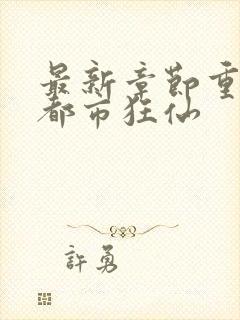 最新章節重
都市狂仙
許勇